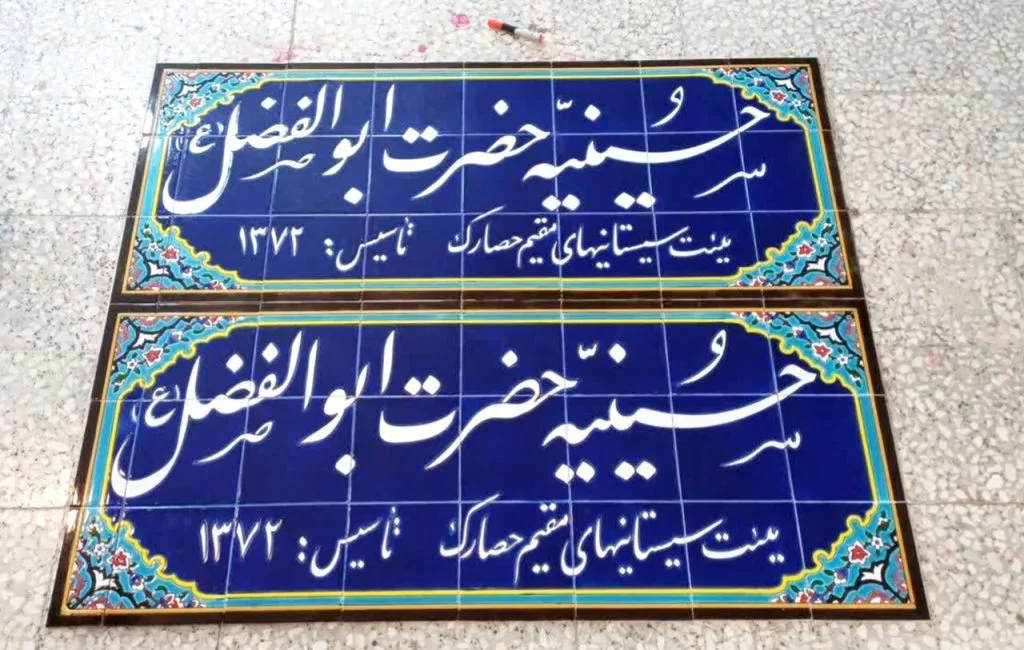 حسینیه حضرت ابوالفضل (ع)
هیئت سیستانیهای مقیم حصارک تاسیس: ۱۳۷۲
حسینیه حضرت ابوالفضل (ع)
هیئت سیستانیهای مقیم حصارک تاسیس: ۱۳۷۲